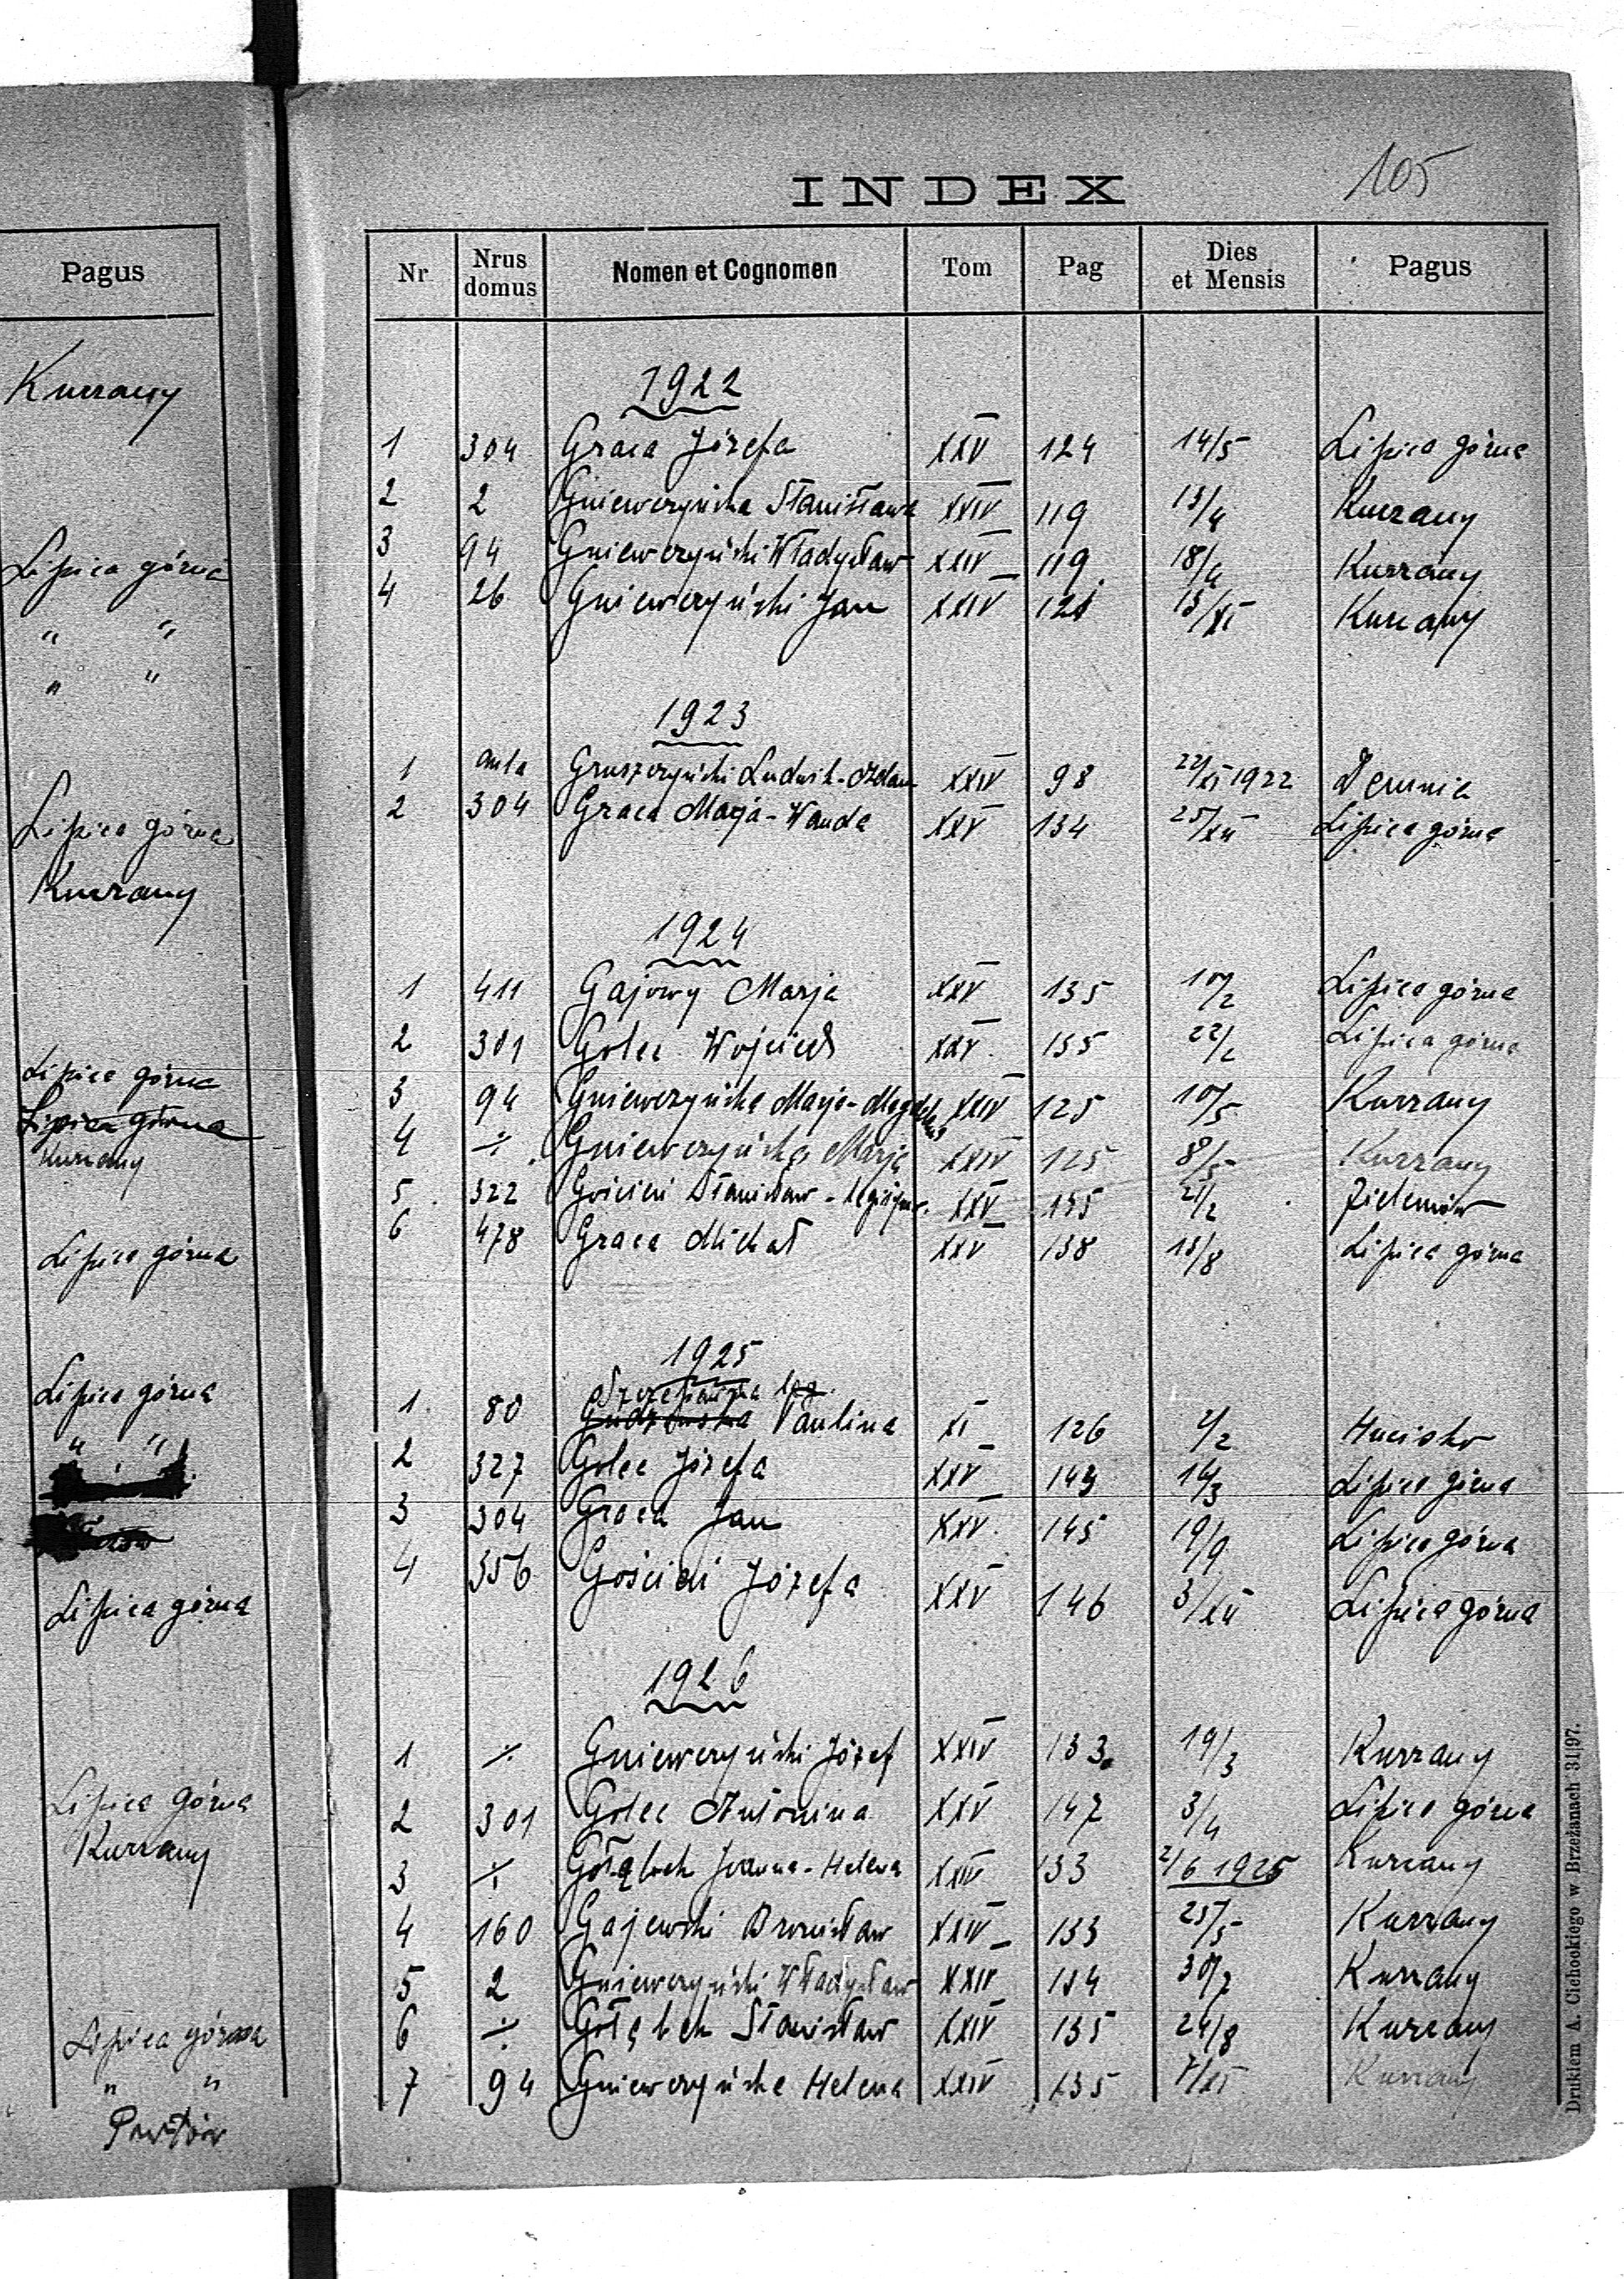 105
INDEX
Pagus
Kurzany
Lipica górna
" "
" "
Lipica górna
Kurzany
Lipica górna
Lipica górna
Kurzany
Lipica górna
Lipica górna
" "
Lipica górna
Lipica górna
Kurzany
Lipica górna
" "
Nr Nrus domus Nomen et Cognomen Tom Pag Dies et Mensis Pagus
1922
1 304 Graca Józefa XXV 124 14/5 Lipica górna
2 2 Gniewczyńska Stanisława XXIV 119 13/4 Kurzany
3 94 Gniewczyński Władysław XXIV 119 18/4 Kurzany
4 26 Gniewczyński Jan XXIV 121 13/XI Kurzany
1923
1 aula Gruszczyński Ludwik-Adam XXIV 98 22/XI 1922 Demnia
2 304 Graca Marja-Wanda XXV 134 25/XII Lipica górna
1924
1 411 Gajowy Marja XXV 135 10/2 Lipica górna
2 301 Golec Wojciech XXV 135 22/2 Lipica górna
3 94 Gniewczyńska Marja-Magdalena XXIV 125 10/5 Kurzany
4 ·/· Gniewczyńska Marja XXIV 125 8/5 Kurzany
5 322 Gościcki Stanisław - XXV 135 21/2 Zielenów
6 478 Graca Michał XXV 138 13/8 Lipica górna
1925
Szczepańska leg.
1 80 Paulina XI 126 2/2 Hucisko
2 327 Golec Józefa XXV 143 14/3 Lipica górna
3 304 Graca Jan XXV 145 19/9 Lipica górna
4 356 Gościcki Józefa XXV 146 3/XII Lipica górna
1926
1 ·/· Gniewczyński Józef XXIV 133 19/3 Kurzany
2 301 Golec Antonina XXV 147 3/4 Lipica górna
3 ·/· Gołąbek Joanna-Helena XXIV 133 2/6 1925 Kurzany
4 160 Gajewski Bronisław XXIV 133 25/5 Kurzany
5 2 Gniewczyński Władysław XXIV 134 30/7 Kurzany
6 ·/· Gołąbek Stanisław XXIV 135 24/8 Kurzany
7 94 Gniewczyńska Helena XXIV 135 7/XI Kurzany
Drukiem A. Cichockiego w Brzeżanach 31|97.